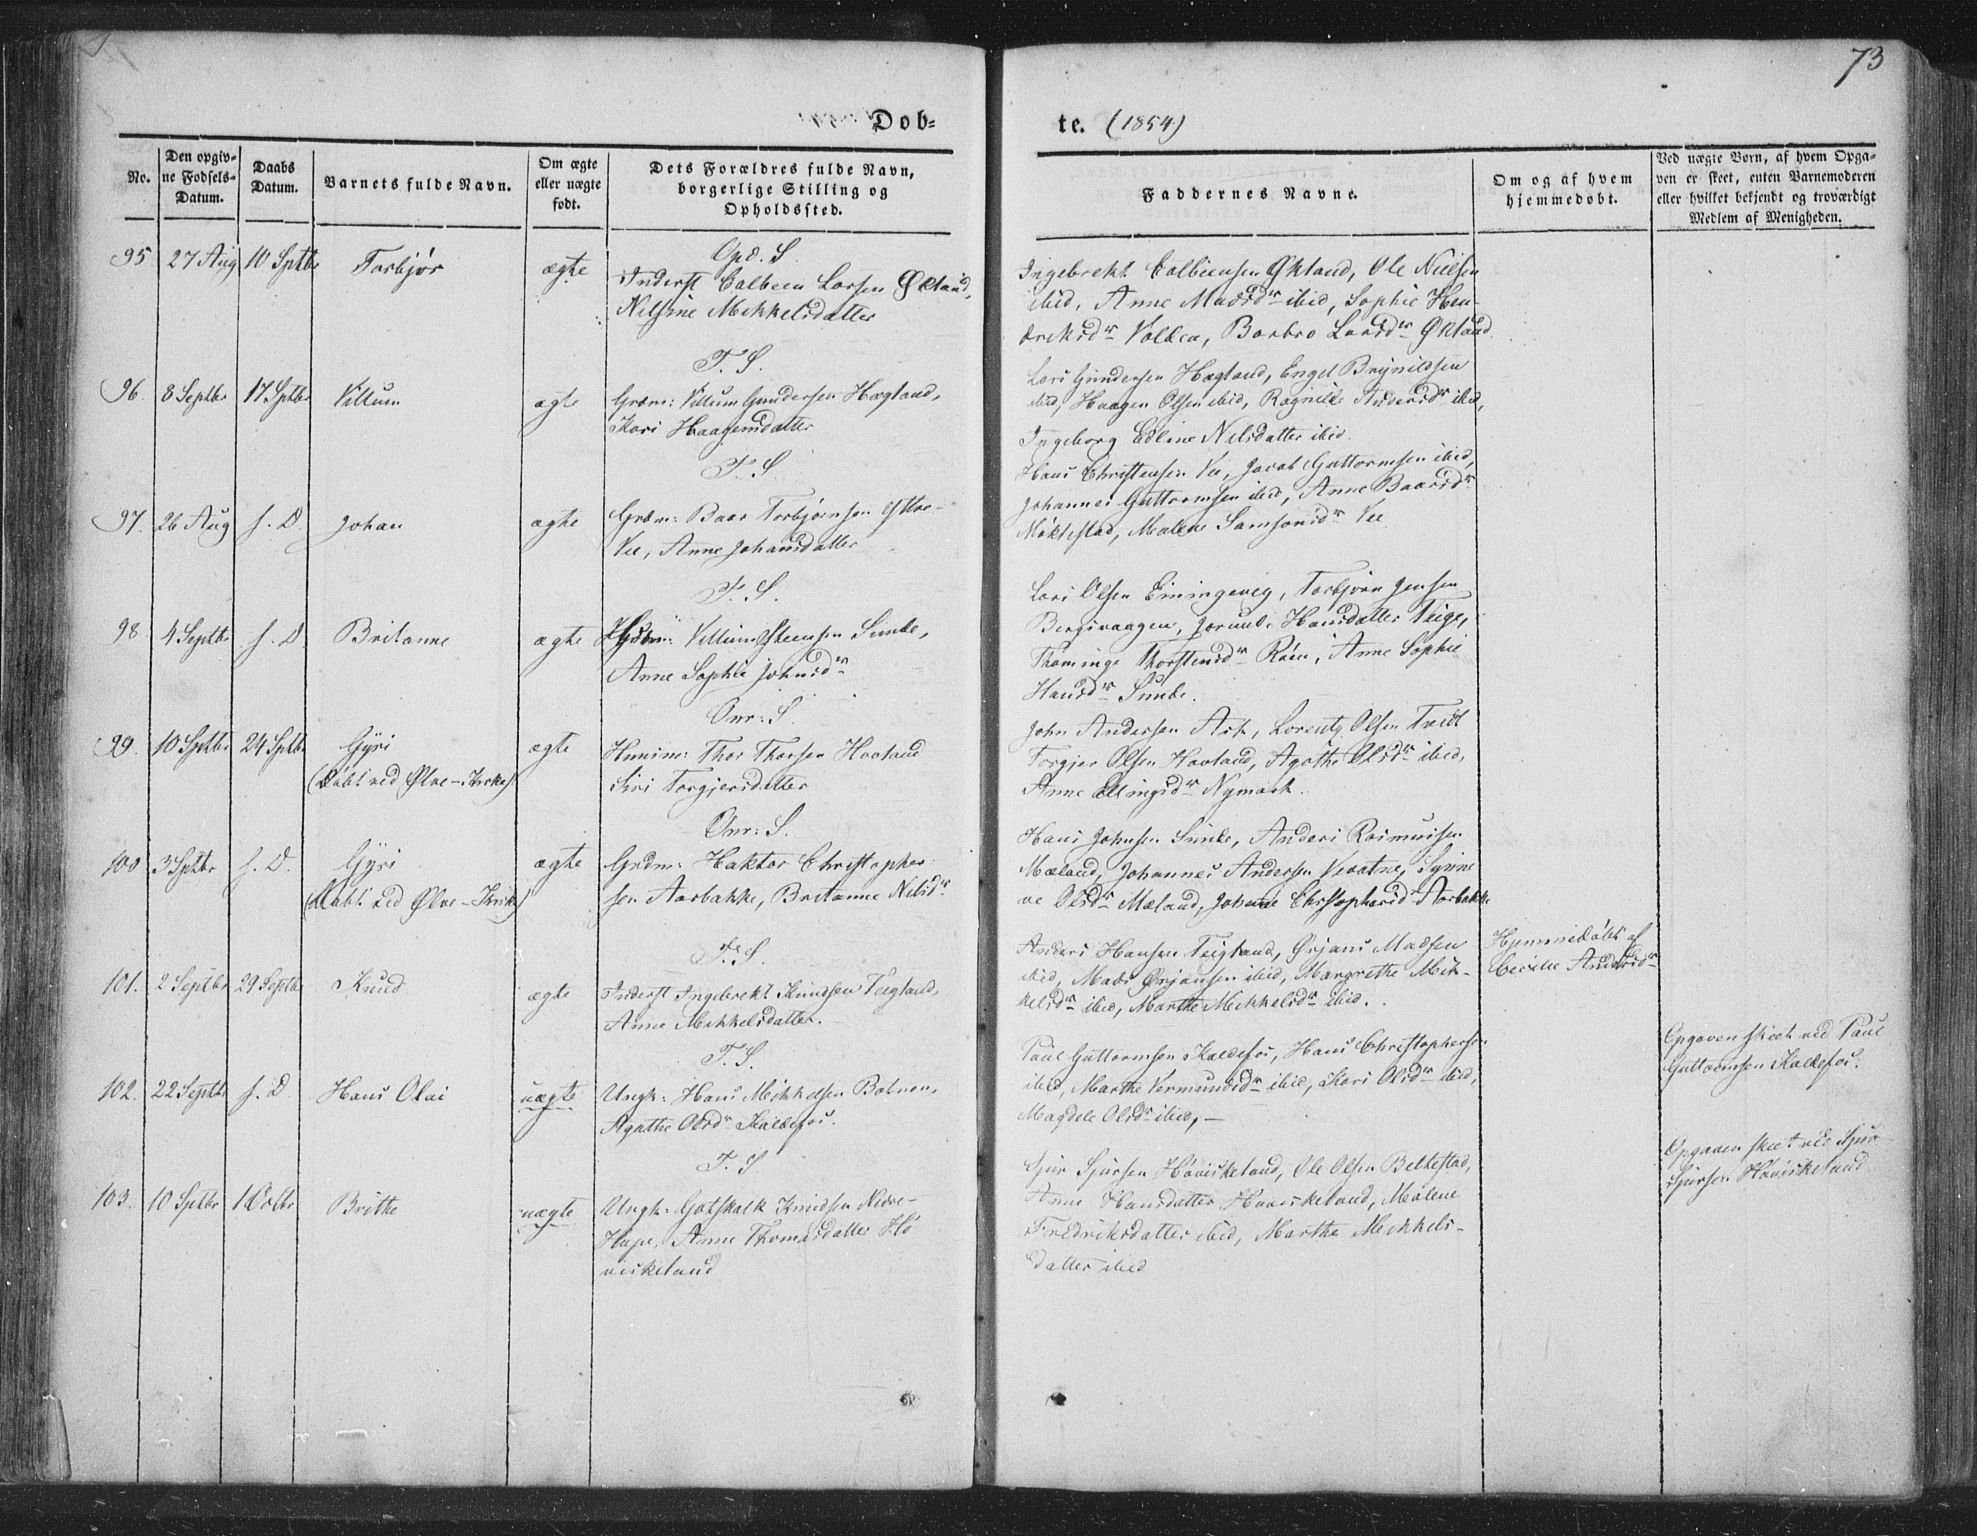 73
Dob=
te. (1854)
No.
Den opgiv=
ne Fodsels=
Datum.
Daabs
Datum.
Barnets fulde Navn.
Om ægte
eller uægte
født.
Dets Forældres fulde Navn,
borgerlige Stilling og
Opholdssted.
Faddernes Navne.
Om og af hvem
hjemmedøbt.
Ved uægte Born, af hvem Opga=
ven er skeet, enten Barnemoderen
eller hvilket bekjendt og troværdigt
Medlem af Menigheden.
Opd. S
95 27 Aug 10 Sptbr Torbjør ægte
Inderst Colbeen Larsen Økland,
Nilsine Mikkelsdatter
Ingebrekt Colbeensen Økland, Ole Nielsen
ibid, Anne Madsdr ibid, Sophie Hen-
driksdr Valdra, Barbro Larsdr Økland
T. S.
96. 8 Septbr 17 Sptbr Villum ægte
Grdm: Villum Gundersen Hægland,
Kari Haagensdatter
Lars Gundersen Hægland, Engel Brynildsen
ibid, Haagen Olsen ibid, Ragnilde Andersdr ibid,
Ingeborg Edline Nilsdatter ibid.
T. S.
97. 26 Aug s. D Johan ægte
Grdm: Baar Torbjørnsen Østre-
Vee, Anne Johansdatter
Hans Christensen Vee, Jacob Guttormsen ibid,
Johannes Guttormsen ibid, Anne Baarsdr
Møklestad, Malene Samsonsdr Vee
T. S.
98 4 Septbr s. D Britanne ægte
Villum Osteensen Simle,
Anne Sophie Johnsdr
Lars Olsen Einingevig, Torbjørn Jensen
Bergsvaagen, Jorund Hansdatter Teige,
Thorstensdr Røen, Anne Sophie
Hansdr Simle.
Ønr: S
99. 10 Sptbr 24 Sptbr Gyri ægte
(døbt ved Ølve-Kirke)
Husm: Thor Thorsen Hovland
Siri Torgjersdatter
John Andersen Ask, Lorentz Olsen Tveit
Torgjer Olsen Hovland, Agathe Olsdr ibid,
Anne Ellingsdr Nymark.
Ønr: S.
100 3 Sptbr s. D. Gyri ægte
(døbt ved Ølve-Kirke)
Grdm: Haktor Christopher-
sen Aarbakke, Britanne Nilsdr
Hans Johnsen Simle, Anders Rasmussen
Mæland, Johannes Andersen Vevatne, Synne-
ve Olsdr Mæland, Johanne Christophersdr Aarbakke
T. S.
101. 2 Septbr 29 Septbr Knud ægte
Inderst Ingebrekt Knudsen Teigland,
Anne Mikkelsdatter.
Anders Hansen Teigland, Ørjans Madsen
ibid, Mads Ørjansen ibid, Margrethe Mik-
kelsdr ibid, Marthe Mikkelsdr ibid.
Hjemmedøbt af
Cecilie Andersdr
T. S.
102. 22 Septbr s. D Hans Olai uægte
Ungk: Hans Mikkelsen Botnen,
Agathe Olsdr Kaldefos.
Paul Guttormsen Kaldefos, Hans Christophersen
ibid, Marthe Vermundsdr ibid, Kari Olsdr ibid,
Magdele Olsdr ibid, -
Opgaven skeet ved Paul
Guttormsen Kaldefos.
T. S
103. 10 Sptbr 1 Octbr Brithe uægte
Ungk: Gotskalk Knudsen Nedre-
Hage, Anne Thomasdatter Hø
viskeland
Sjur Sjursen Høviskeland, Ole Olsen Belkestad,
Anne Hansdatter Høviskeland, Malene
Fredriksdatter ibid, Marthe Mikkels-
datter ibid
Opgaven skeet ved Sjur
Sjursen Høviskeland